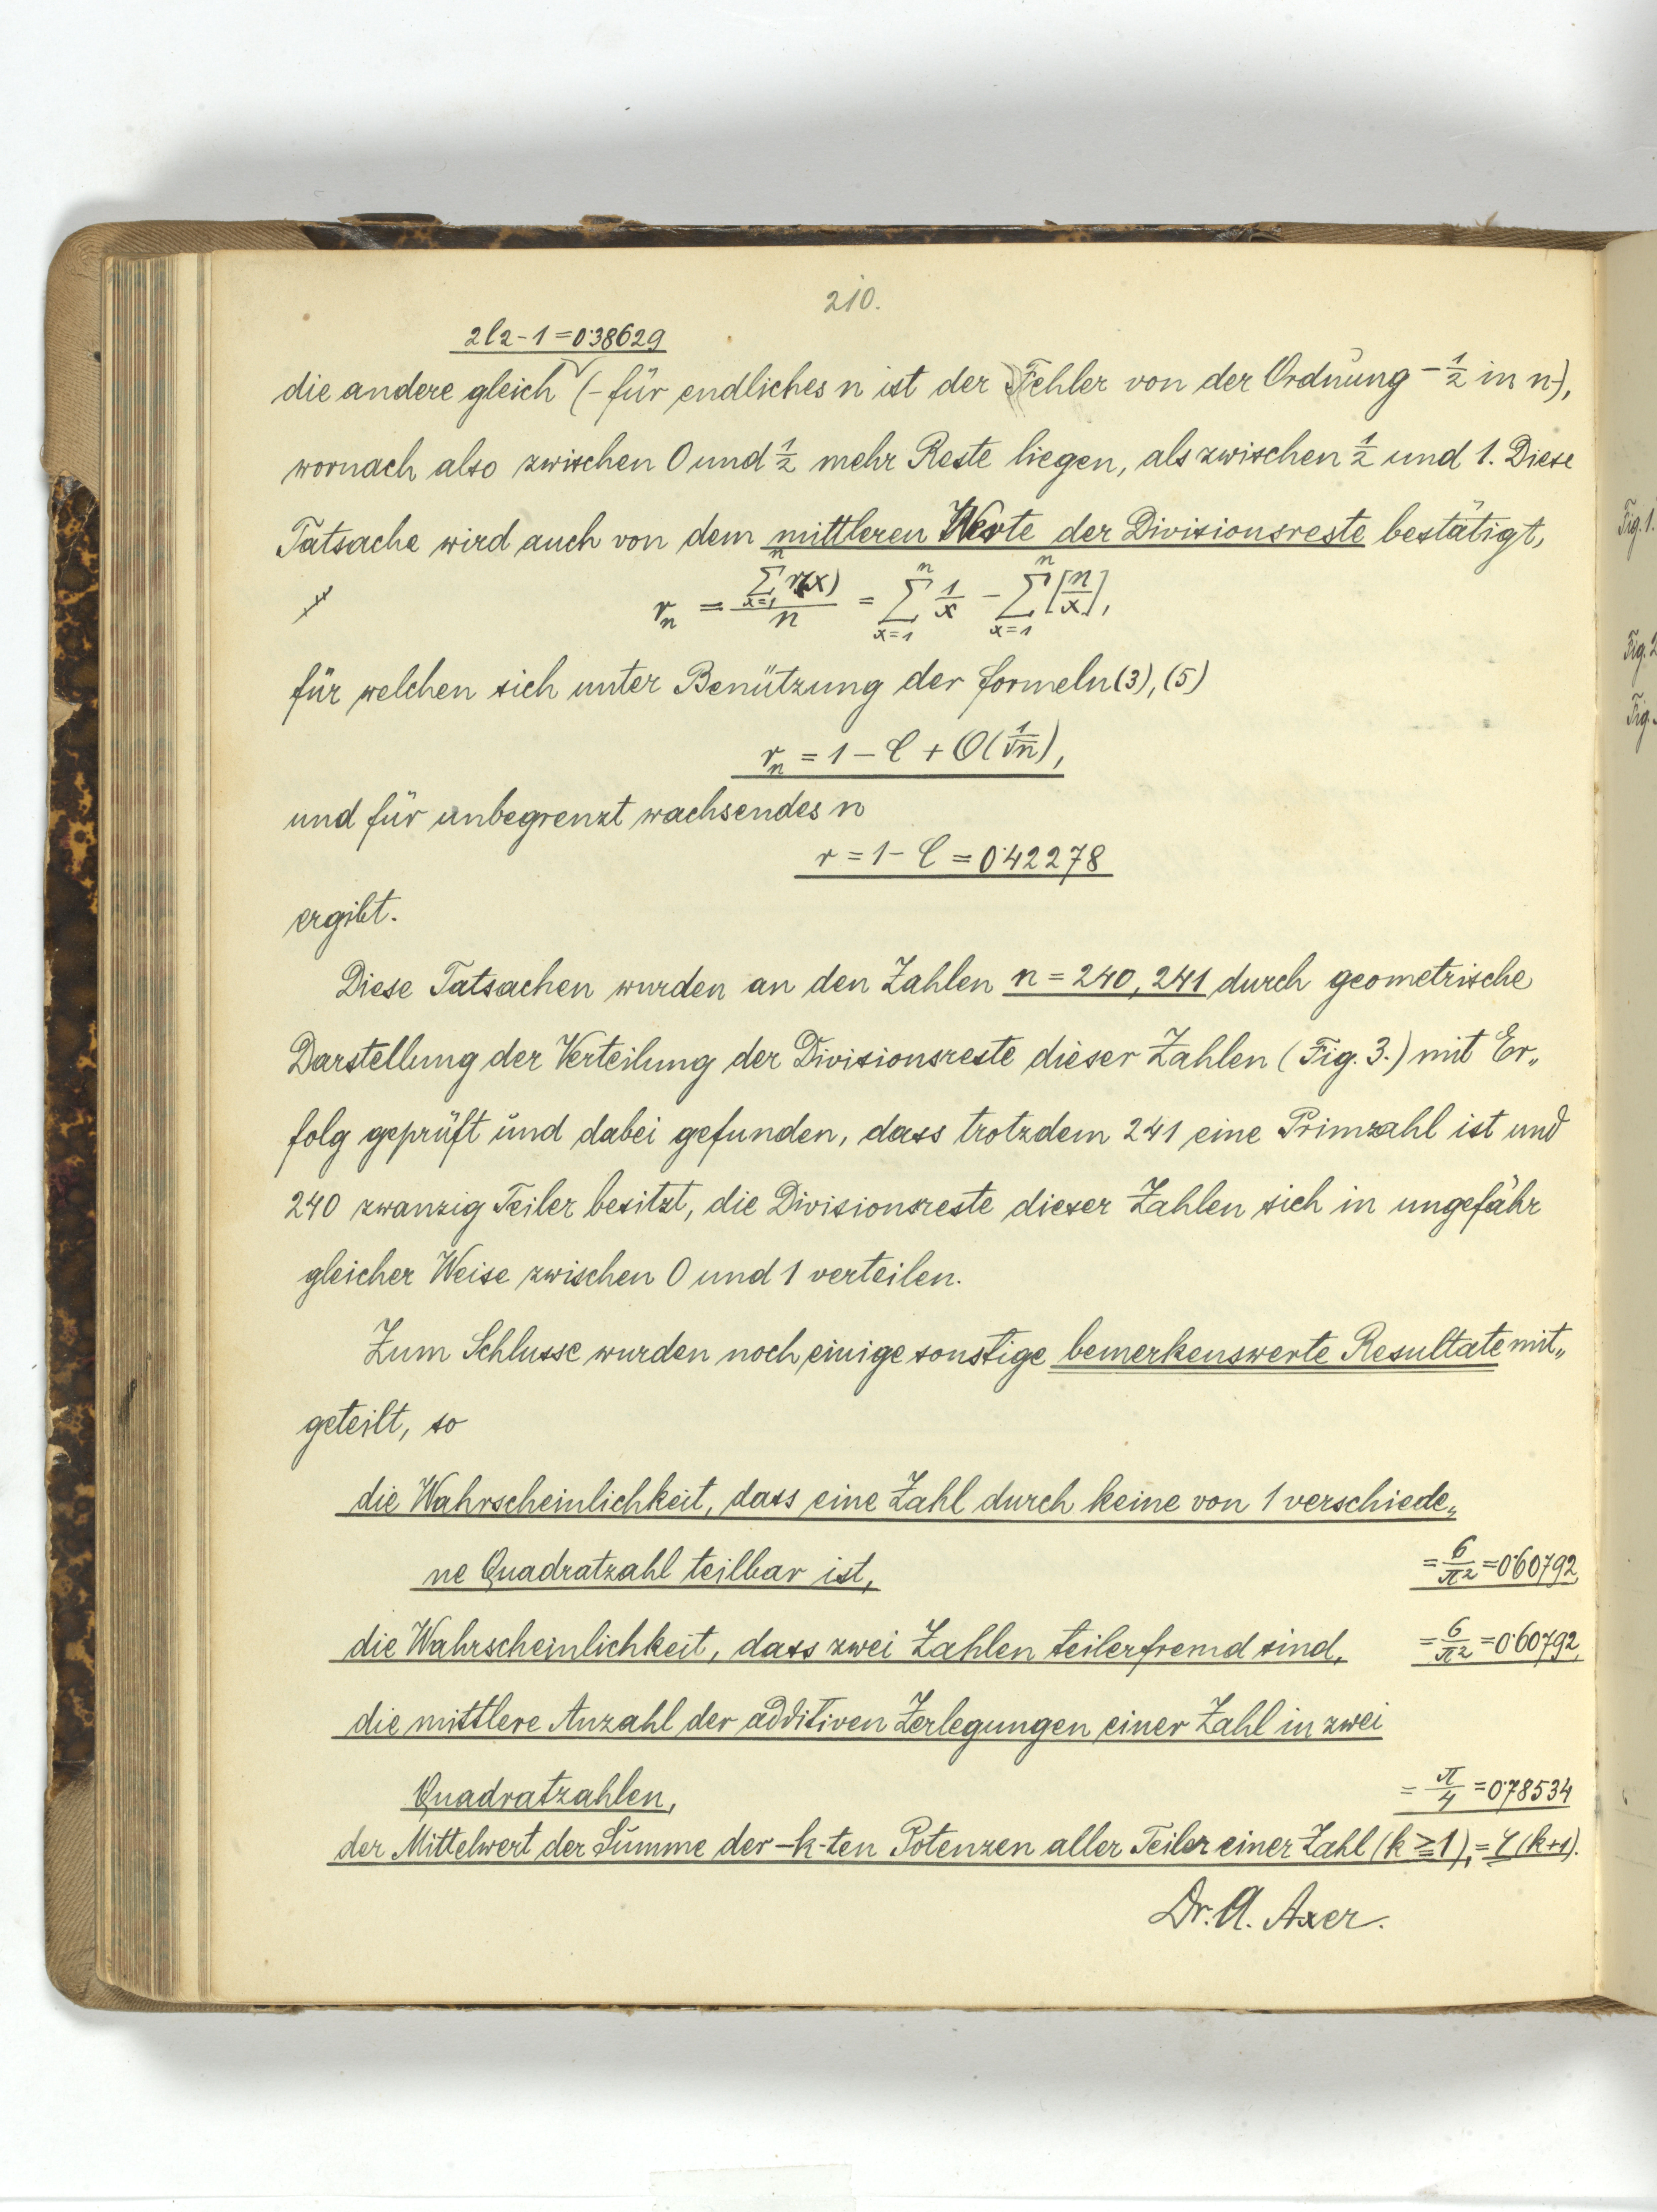 210.
2l2-1=0·38629
die andere gleich (-für endliches n ist der Fehler von der Ordnung -½ in n-),
wornach also zwischen 0 und ½ mehr Reste liegen, als zwischen ½ und 1. Diese
Tatsache wird auch von dem mittleren Werte der Divisionsreste bestätigt,
r_n = \frac{\sum_{x=1}^{n} r(x)}{n} = \sum_{x=1}^{n} \frac{1}{x} - \sum_{x=1}^{n} [\frac{n}{x}],
für welchen sich unter Benützung der Formeln (3), (5)
r_n = 1 - C + O(\frac{1}{\sqrt{n}}),
und für unbegrenzt wachsendes n
r = 1 - C = 0·42278
ergibt.
Diese Tatsachen wurden an den Zahlen n = 240, 241 durch geometrische
Darstellung der Verteilung der Divisionsreste dieser Zahlen (Fig. 3.) mit Er„
folg geprüft und dabei gefunden, dass trotzdem 241 eine Primzahl ist und
240 zwanzig Teiler besitzt, die Divisionsreste dieser Zahlen sich in ungefähr
gleicher Weise zwischen 0 und 1 verteilen.
Zum Schlusse wurden noch einige sonstige bemerkenswerte Resultate mit„
geteilt, so
die Wahrscheinlichkeit, dass eine Zahl durch keine von 1 verschiede„
ne Quadratzahl teilbar ist, = \frac{6}{π²} = 0·60792,
die Wahrscheinlichkeit, dass zwei Zahlen teilerfremd sind, = \frac{6}{π²} = 0·60792,
die mittlere Anzahl der additiven Zerlegungen einer Zahl in zwei
Quadratzahlen, = \frac{π}{4} = 0·78534
der Mittelwert der Summe der -k-ten Potenzen aller Teiler einer Zahl (k ≧ 1), = ζ(k+1).
Dr. A. Axer.
Fig. 1.
Fig. 2
Fig.